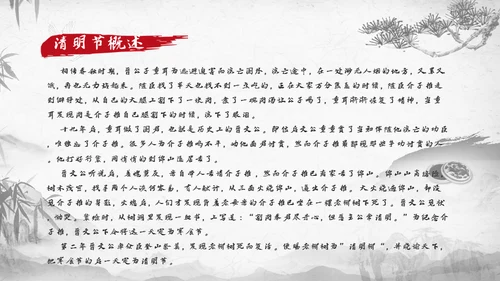 清明节概述
相传春秋时期，晋公子重耳为逃避迫害而流亡国外，流亡途中，在一处渺无人烟的地方，又累又
饿，再也无力站起来。随臣找了半天也找不到一点吃的，正在大家万分焦急的时候，随臣介子推走
到僻静处，从自己的大腿上割下了一块肉，煮了一碗肉汤让公子喝了，重耳渐渐恢复了精神，当重
耳发现肉是介子推自己腿上割下的时候，流下了眼泪。
十九年后，重耳做了国君，也就是历史上的晋文公。即位后文公重重赏了当初伴随他流亡的功臣
，唯独忘了介子推。很多人为介子推鸣不平，劝他面君讨赏，然而介子推最鄙视那些争功讨赏的人
。他打好行装，同悄悄的到绵山隐居去了。
晋文公听说后，羞愧莫及，亲自带人去请介子推，然而介子推已离家去了绵山。绵山山高路险，
树木茂密，找寻两个人谈何容易，有人献计，从三面火烧绵山，逼出介子推。大火烧遍绵山，却没
见介子推的身影，火熄后，人们才发现背着老母亲的介子推已坐在一棵老柳树下死了。晋文公见状
，恸哭。装殓时，从树洞里发现一血书，上写道：“割肉奉君尽丹心，但愿主公常清明。”为纪念介
子推，晋文公下令将这一天定为寒食节。
第二年晋文公率众臣登山祭奠，发现老柳树死而复活。便赐老柳树为”清明柳“，并晓谕天下，
把寒食节的后一天定为清明节。